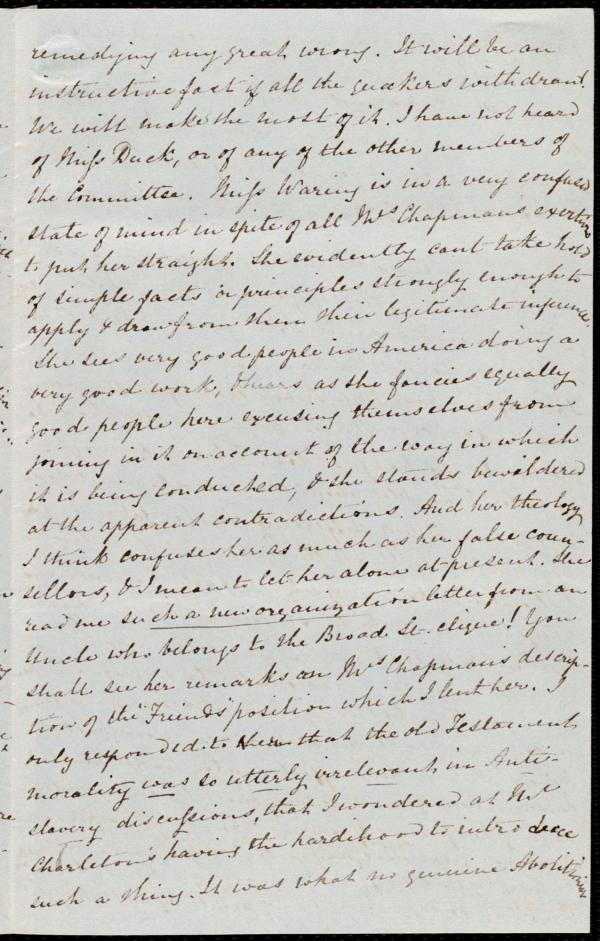 remedying any great wrong. It will be an
instructive fact if all the quakers withdraw!
We will make the most of it. I have not heard
of Miss Duck, or of any of the other members of
the Committee. Miss Waring is in a very confused
state of mind in spite of all Mrs Chapman's exertions
to put her straight. She evidently can't take hold
of simple facts or principles strongly enough to
apply & draw from them their legitimate inference.
She sees very good people in America doing a
very good work, & hears as she fancies equally
good people here excusing themselves from
joining in it on account of the way in which
it is being conducted, & she stands bewildered
at the apparent contradictions. And her theology
I think confuses her as much as her false coun-
sellors, & I mean to let her alone at present. She
read me such a new organization letter from an
Uncle who belongs to the Broad St. clique! You
shall see her remarks on Mrs Chapman's descrip-
tion of the "Friends" position which I lent her. I
only responded to them that the old Testament
morality was so utterly irrelevant in Anti-
slavery discussions, that I wondered at Mr
Charleton's having the hardihood to introduce
such a thing. It was what no genuine Abolitionist